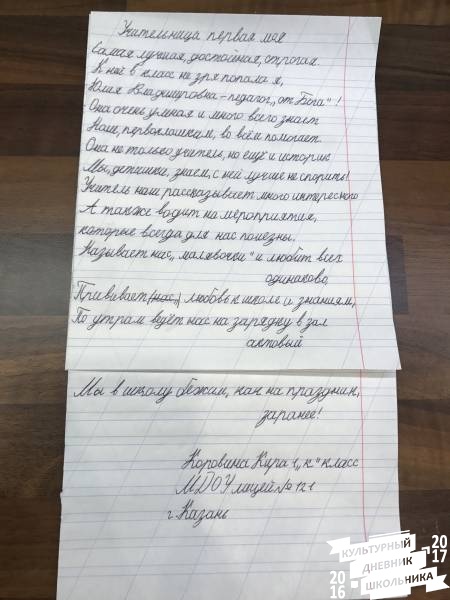 Учительница первая моя
Самая лучшая, достойная, строгая.
К ней в класс не зря попала я,
Юлия Владимировна - педагог „от Бога"!
Она очень умная и много всего знает
Нам, первоклашкам, во всём помогает.
Она не только учитель, но ещё и историк
Мы, детишки, знаем, с ней лучше не спорить!
Учитель наш рассказывает много интересного
А также водит на мероприятия,
которые всегда для нас полезны.
Называет нас „малявочки" и любит всех
одинаково,
Прививает (нас) любовь к школе и знаниям,
По утрам ведёт нас на зарядку в зал
актовый
Мы в школу бежим, как на праздник,
заранее!
Коровина Кира 1 „к" класс
МДОУ лицей № 121
г. Казань
КУЛЬТУРНЫЙ
ДНЕВНИК
ШКОЛЬНИКА
2016
2017